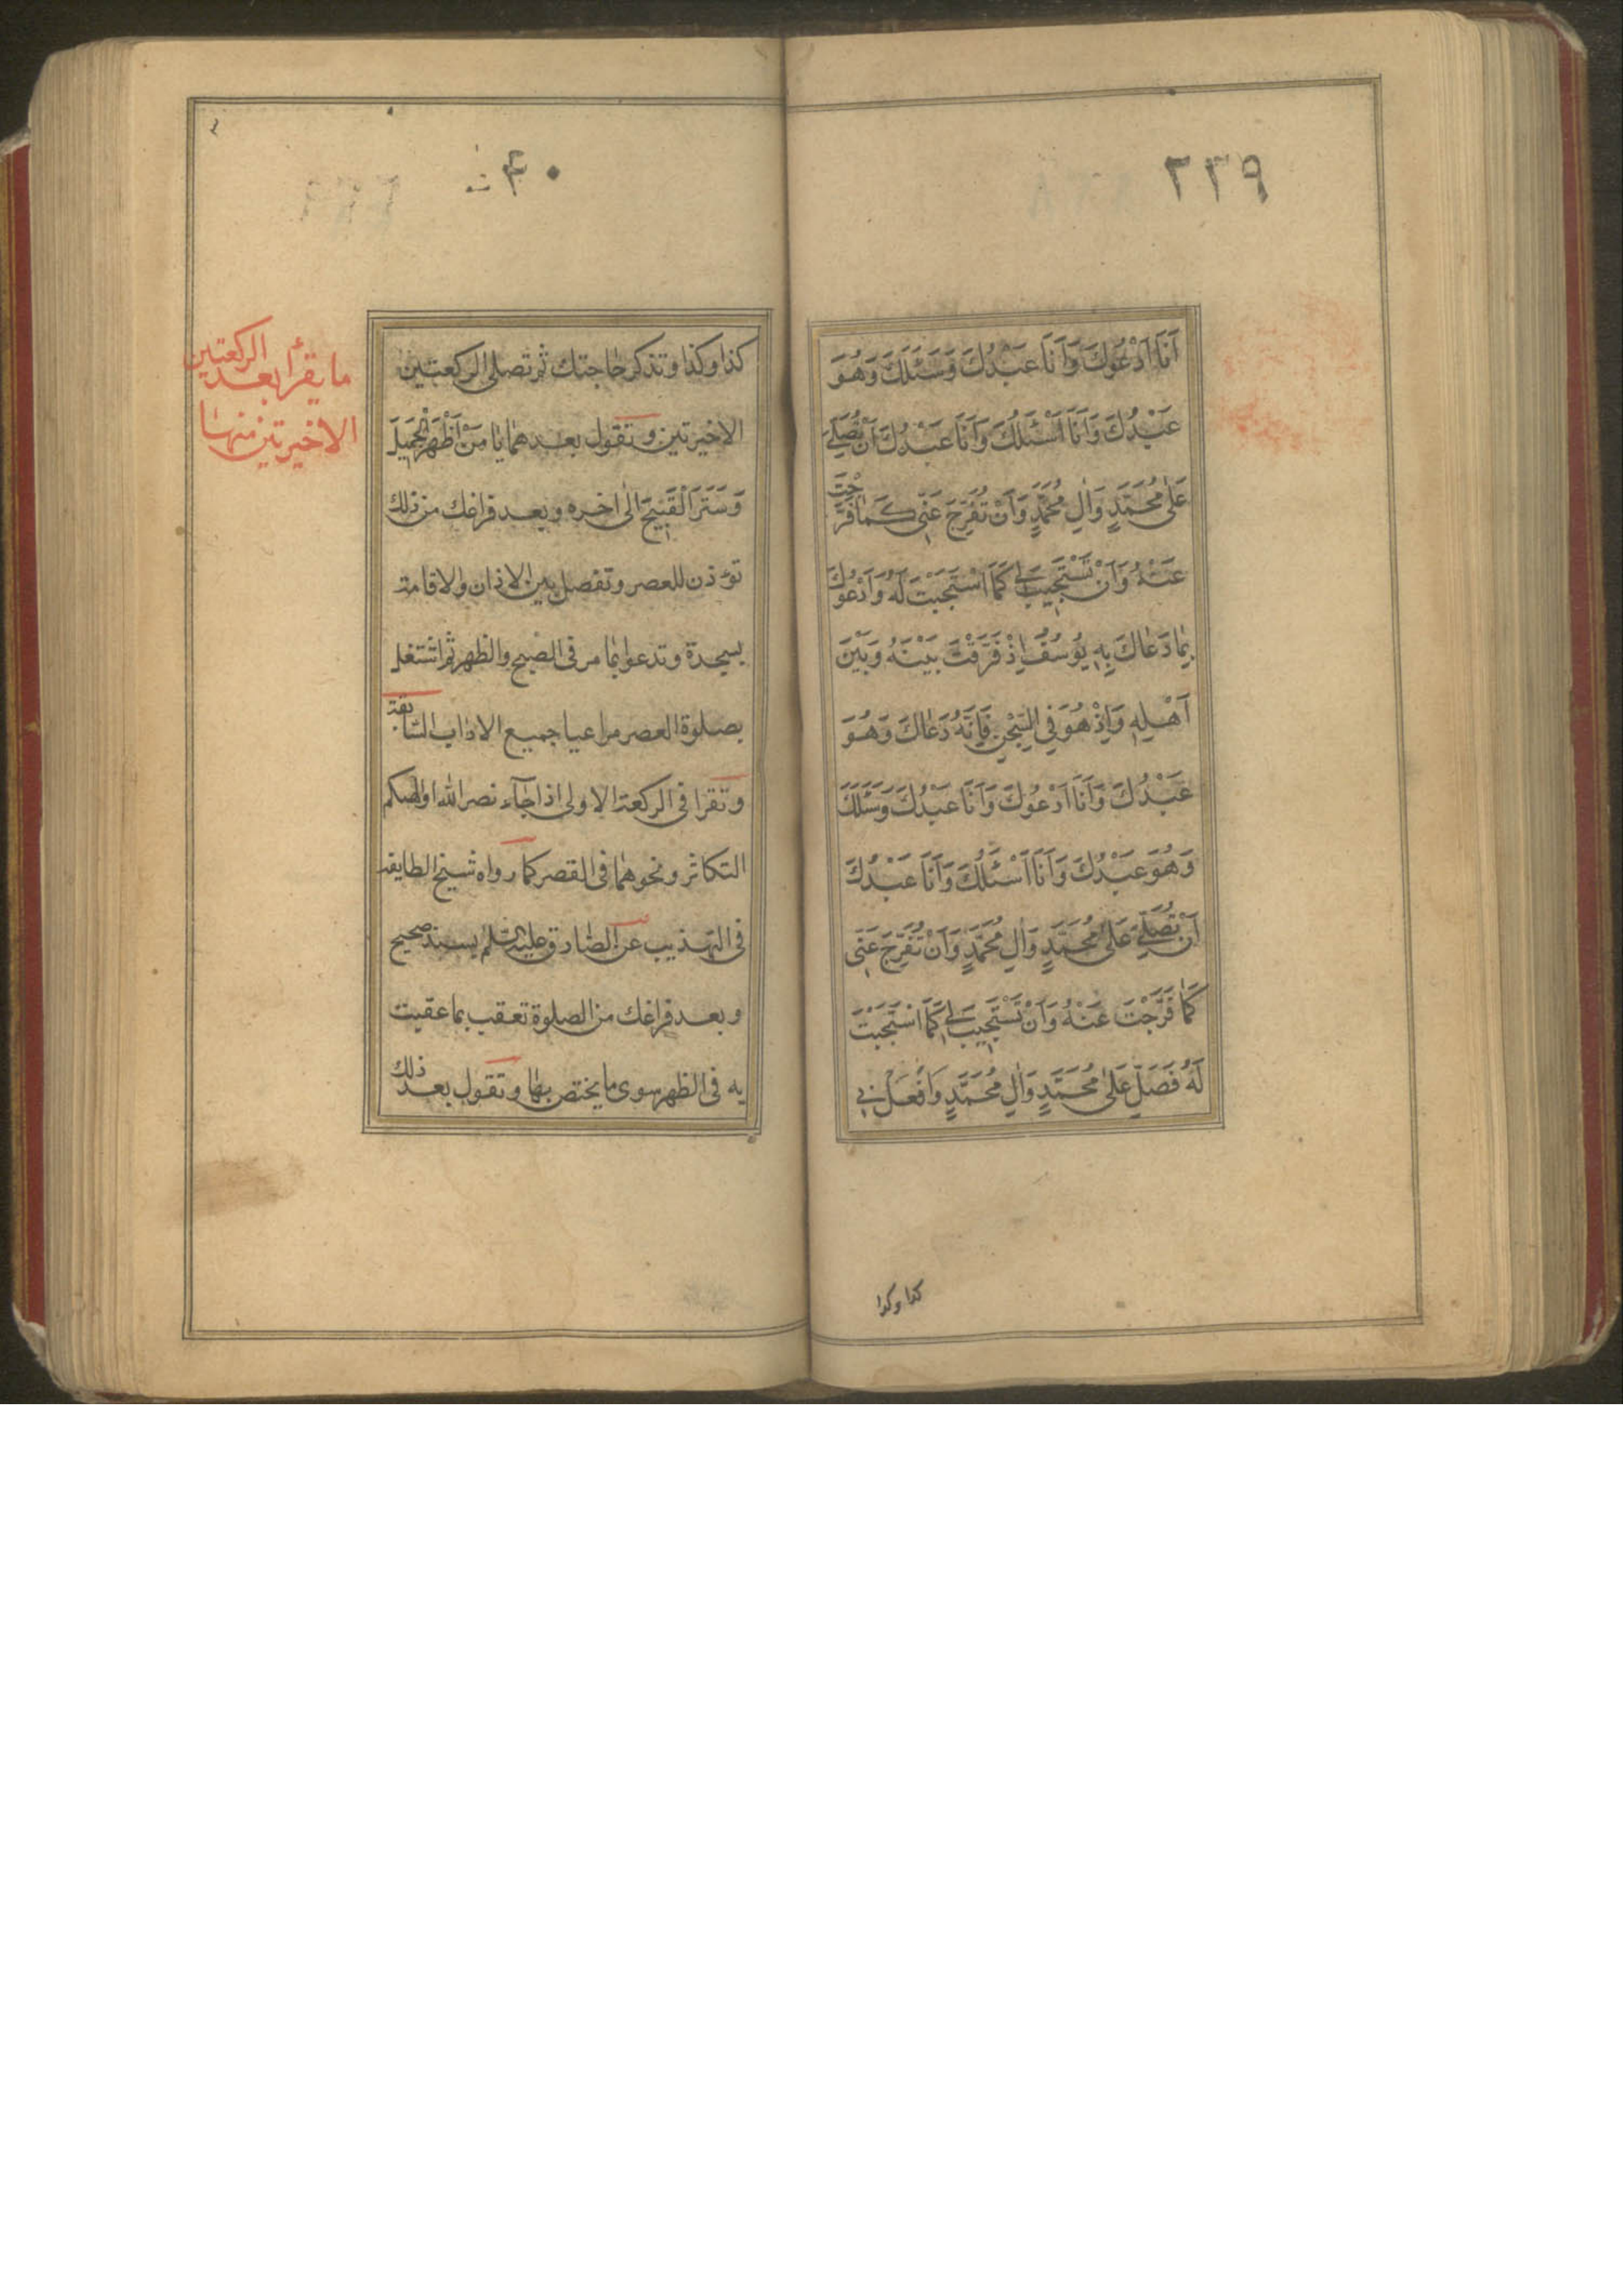 ٢٣٩
اَنَا اَدْعُوكَ وَاَنَا عَبْدُكَ وَسَئَلَكَ وَهُوَ
عَبْدُكَ وَاَنَا اَسْئَلُكَ وَاَنَا عَبْدُكَ اَنْ تُصَلِّيَ
عَلىٰ مُحَمَّدٍ وَاٰلِ مُحَمَّدٍ وَاَنْ تُفَرِّجَ عَنّى كَمٰا فَرَّجْتَ
عَنْهُ وَاَنْ تَسْتَجيبَ لى كَمَا اسْتَجَبْتَ لَهُ وَاَدْعُوكَ
بِمٰا دَعٰاكَ بِهِ يُوسُفُ اِذْ فَرَّقْتَ بَيْنَهُ وَبَيْنَ
اَهْلِهِ وَاِذْ هُوَ فِى السِّجْنِ فَاِنَّهُ دَعٰاكَ وَهُوَ
عَبْدُكَ وَاَنَا اَدْعُوكَ وَاَنَا عَبْدُكَ وَسَئَلَكَ
وَهُوَ عَبْدُكَ وَاَنَا اَسْئَلُكَ وَاَنَا عَبْدُكَ
اَنْ تُصَلِّيَ عَلىٰ مُحَمَّدٍ وَاٰلِ مُحَمَّدٍ وَاَنْ تُفَرِّجَ عَنّى
كَمٰا فَرَّجْتَ عَنْهُ وَاَنْ تَسْتَجيبَ لى كَمَا اسْتَجَبْتَ
لَهُ فَصَلِّ عَلىٰ مُحَمَّدٍ وَاٰلِ مُحَمَّدٍ وَافْعَلْ بى
كذا وكذا
كذا وكذا وتذكر حاجتك ثم تصلى الركعتين
الاخيرتين وتقول بعدهما يٰا مَنْ اَظْهَرَ الْجَميلَ
وَسَتَرَ الْقَبيحَ الى اخره وبعد فراغك من ذلك
تؤذن للعصر وتفصل بين الاذان والاقامة
بسجدة وتدعوا بما مر فى الصبح والظهر ثم اشتغل
بصلوة العصر مراعيا جميع الاداب السابقة
وتقرا فى الركعة الاولى اذا جآء نصر الله او الهيكم
التكاثر ونحوهما فى القصر كما رواه شيخ الطايفة
فى التهذيب عن الصادق عليه السلم بسند صحيح
وبعد فراغك من الصلوة تعقب بما عقبت
به فى الظهر سوى ما يختص بها وتقول بعد ذلك
ما يقرأ بعد الركعتين
الاخيرتين منها